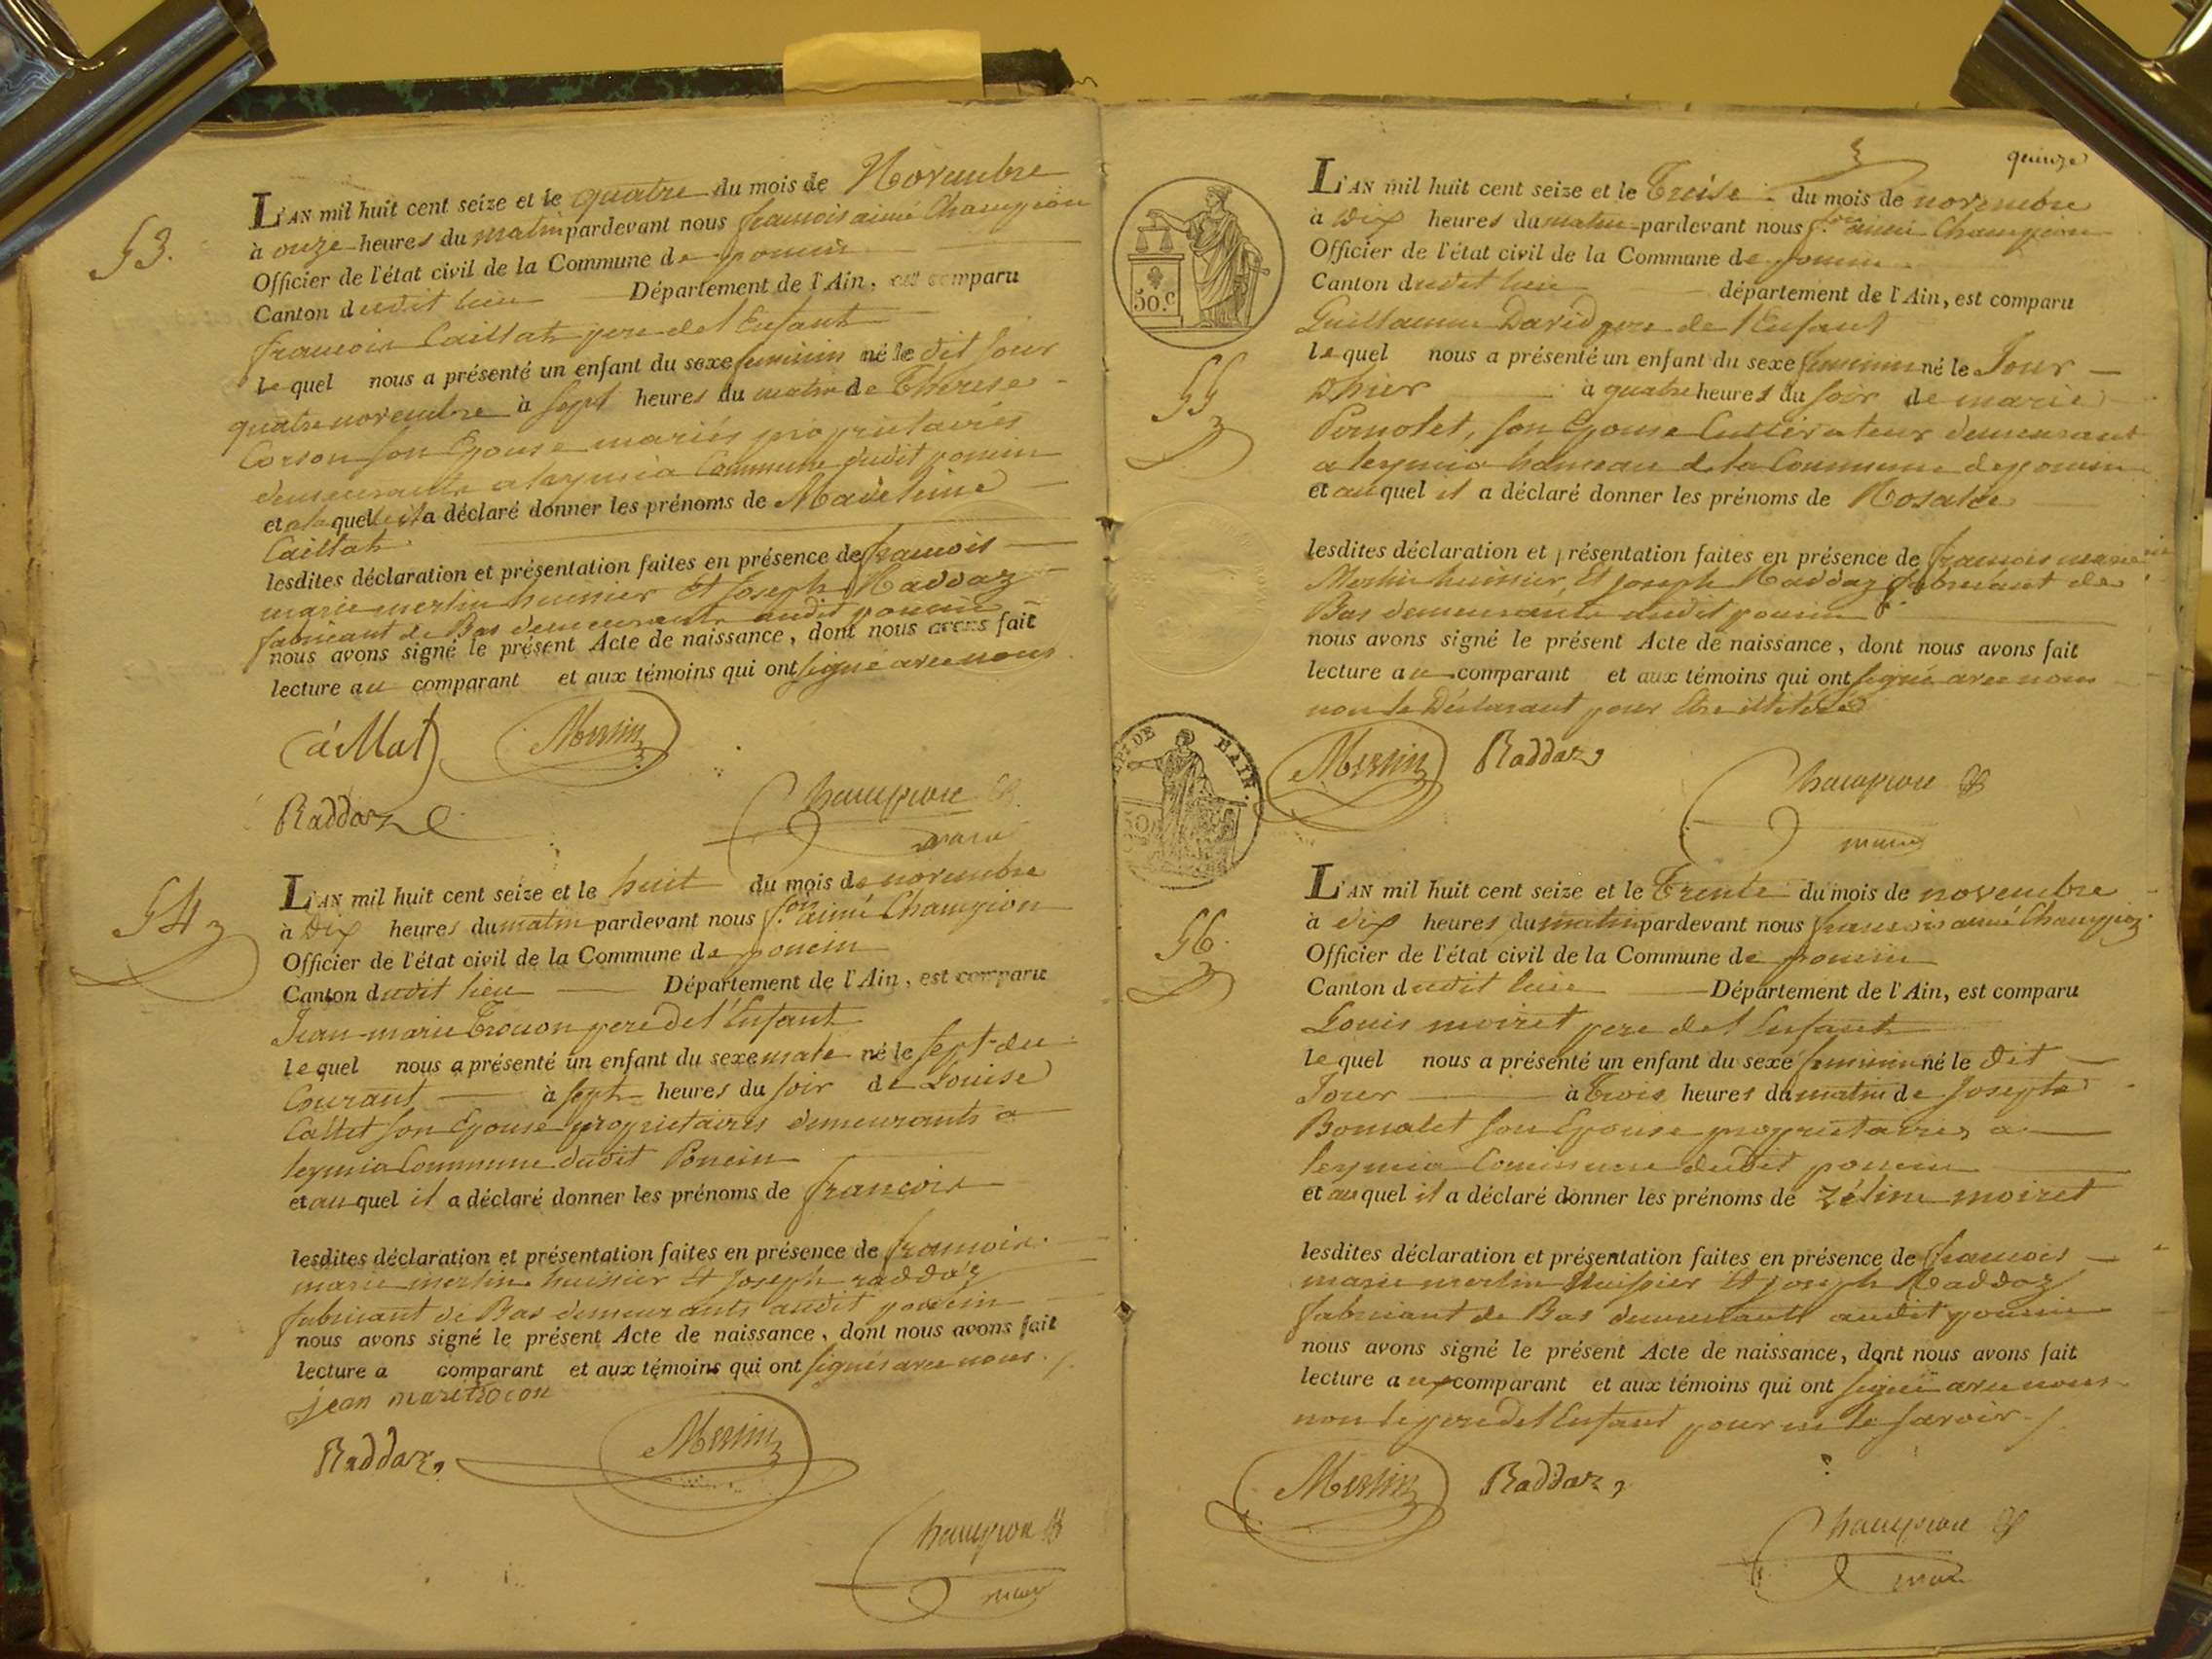 53.
L'AN mil huit cent seize et le quatre du mois de Novembre
à onze heures du matin pardevant nous francois aimé Champion
Officier de l'état civil de la Commune de poncin
Canton dudit lieu Département de l'Ain, est comparu
francois Caillat pere de l'Enfant
lequel nous a présenté un enfant du sexe feminin né le dit Jour
quatre novembre à sept heures du matin de Therese
Corson son Epouse mariés proprietaires
demeurants a leymia Commune dudit poncin
et a laquelle il a déclaré donner les prénoms de Madeleine
Caillat
lesdites déclaration et présentation faites en présence de francois
marie merlin huissier Et Joseph Raddaz
fabricant de Bas demeurants audit poncin
nous avons signé le présent Acte de naissance, dont nous avons fait
lecture au comparant et aux témoins qui ont signé avec nous
Merlin
Raddaz
Champion
maire
54
L'AN mil huit cent seize et le huit du mois de novembre
à Dix heures du matin pardevant nous f.ois aimé Champion
Officier de l'état civil de la Commune de poncin
Canton dudit lieu Département de l'Ain, est comparu
Jean-marie Trocon pere de l'Enfant
lequel nous a présenté un enfant du sexe male né le sept du
Courant à sept heures du soir de Louise
Callet son Epouse proprietaires demeurants a
leymia Commune dudit Poncin
et auquel il a déclaré donner les prénoms de francois
lesdites déclaration et présentation faites en présence de francois
marie merlin huissier Et Joseph raddaz
fabricant de Bas demeurants audit poncin
nous avons signé le présent Acte de naissance, dont nous avons fait
lecture a comparant et aux témoins qui ont signés avec nous
jean marie trocon
Raddaz
Merlin
Champion
maire
quinze
50.c
55
L'AN mil huit cent seize et le Treise du mois de novembre
à Dix heures du matin pardevant nous f.ois aimé Champion
Officier de l'état civil de la Commune de poncin
Canton dudit lieu département de l'Ain, est comparu
Guillaume David pere de l'Enfant
lequel nous a présenté un enfant du sexe feminin né le Jour
D'hier à quatre heures du soir de marie
Pernolet, son Epouse Cultivateurs demeurant
a leymia hameau de la Commune de poncin
et auquel il a déclaré donner les prénoms de Rosalie
lesdites déclaration et présentation faites en présence de francois marie
Merlin huissier, Et joseph Raddaz fabricant de
Bas demeurants audit poncin
nous avons signé le présent Acte de naissance, dont nous avons fait
lecture au comparant et aux témoins qui ont signé avec nous
non le Déclarant pour Etre illiteré
Merlin Raddaz
Champion
maire
DE L'AIN.
56.
L'AN mil huit cent seize et le Trente du mois de novembre
à dix heures du matin pardevant nous francois aimé Champion
Officier de l'état civil de la Commune de poncin
Canton dudit lieu Département de l'Ain, est comparu
Louis moiret pere de l'Enfant
lequel nous a présenté un enfant du sexe feminin né le dit
Jour à Trois heures du matin de Josephe
Bomalet son Epouse proprietaires a
leymia Commune dudit poncin
et auquel il a déclaré donner les prénoms de zéline moiret
lesdites déclaration et présentation faites en présence de francois
marie merlin huissier Et joseph Raddaz
fabricant de Bas demeurants audit poncin
nous avons signé le présent Acte de naissance, dont nous avons fait
lecture au comparant et aux témoins qui ont signé avec nous
non le pere de l'Enfant pour ne le savoir
Merlin Raddaz
Champion
maire